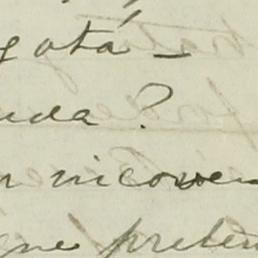 gotá –
uda?
n incoven
que preten